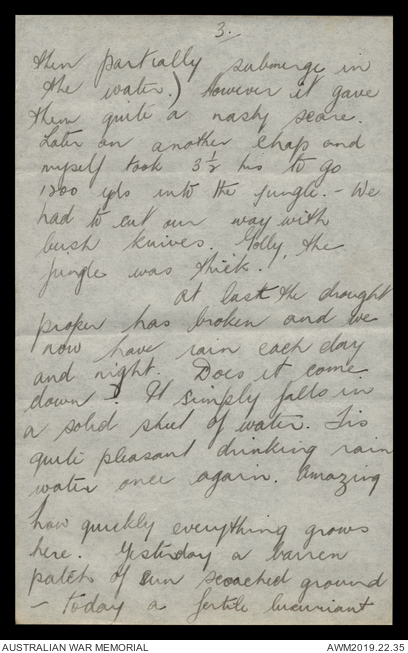 3.
then partially submerge in
the water.) However it gave
them quite a nasty scare.
Later on another chap and
myself took 3½ hrs to go
1200 yds into the jungle. - We
had to cut our way with
bush knives. Golly, the
jungle was thick!
At last the drought
proper has broken and we
now have rain each day
and night. Does it come
down! It simply falls in
a solid sheet of water. Tis
quite pleasant drinking rain
water once again. Amazing
how quickly everything grows
here. Yesterday a barren
patch of sun scorched ground
- today a fertile luxuriant
AUSTRALIAN WAR MEMORIAL
AWM2019.22.35